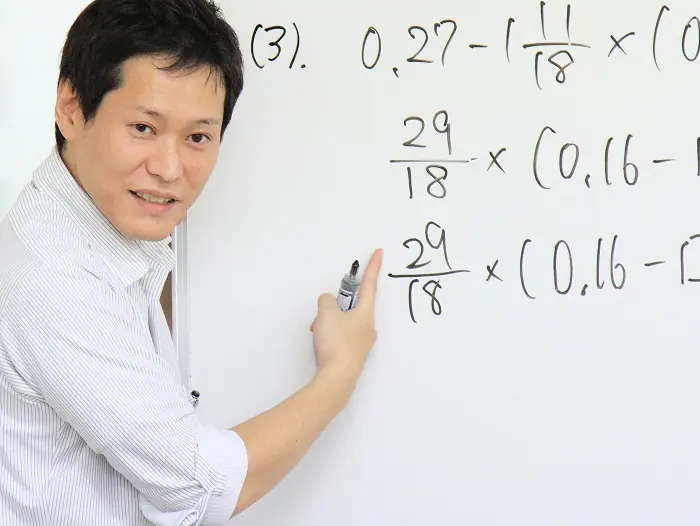 (3). 0.27 - 1 11/18 × (0
29/18 × (0.16 - 1
29/18 × (0.16 - □